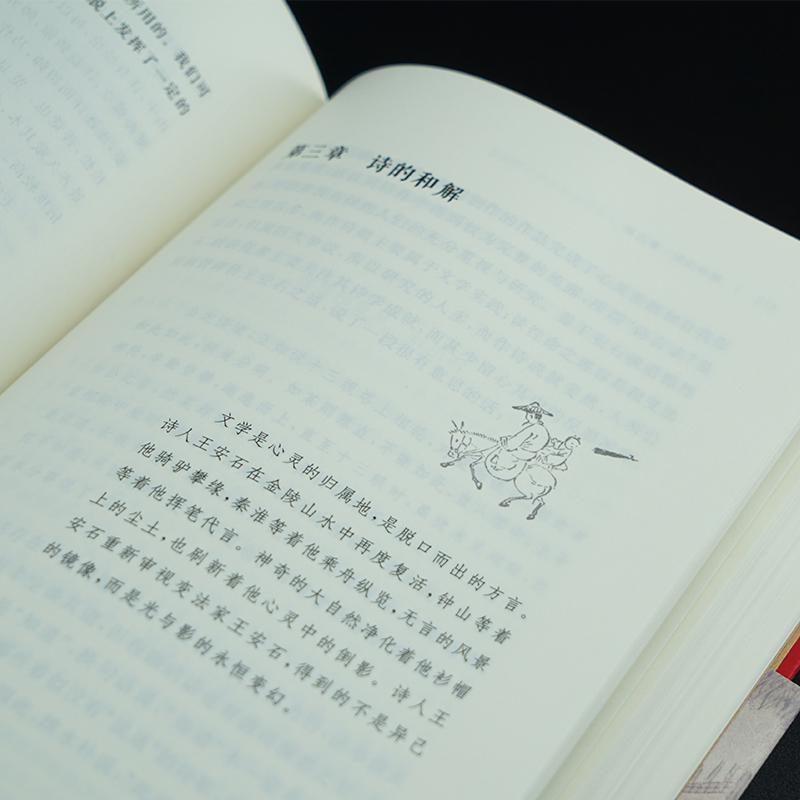 所用的。我们可
上发挥了一定的
第三章 诗的和解
文学是心灵的归属地，是脱口而出的方言。
诗人王安石在金陵山水中再度复活，钟山等着
他骑驴攀缘，秦淮等着他乘舟纵览，无言的风景
等着他挥笔代言。神奇的大自然净化着他衫帽
上的尘土，也刷新着他心灵中的倒影。诗人王
安石重新审视变法家王安石，得到的不是异己
的镜像，而是光与影的永恒变幻。